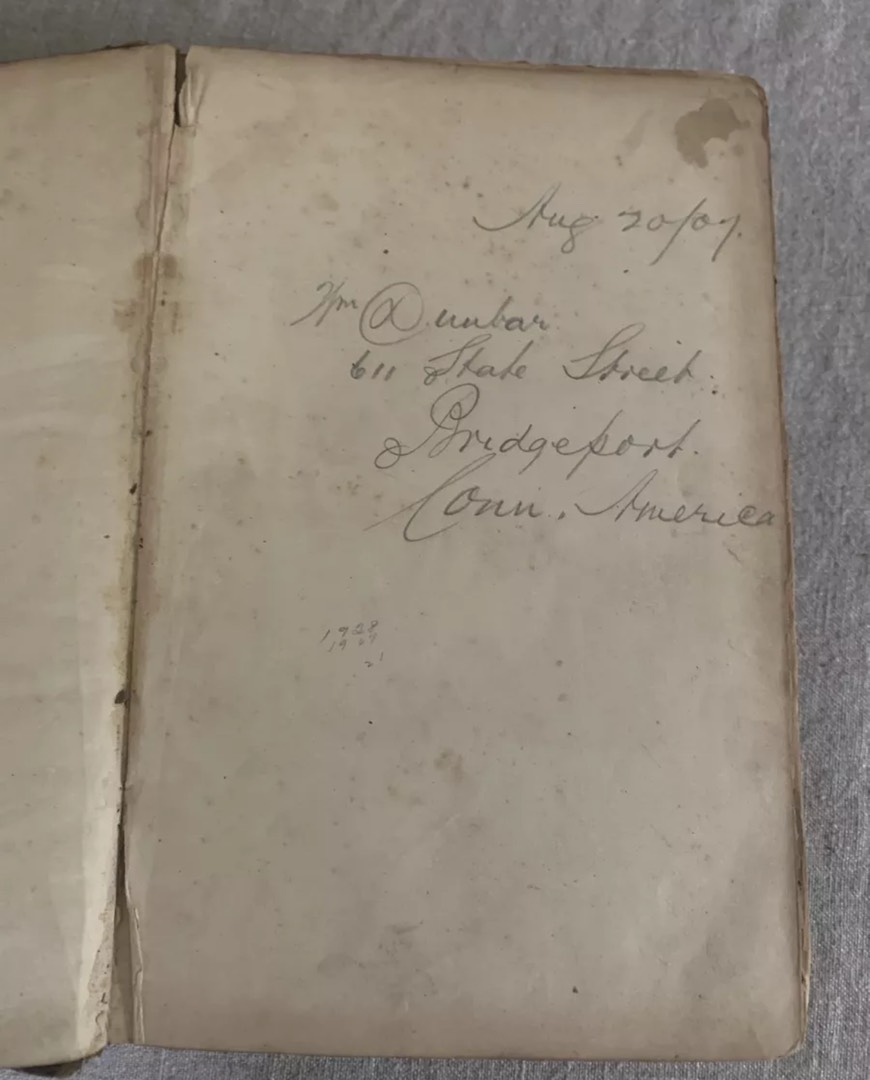 Aug 20/07.
Wm Dunbar
611 State Street.
Bridgeport.
Conn. America
1928
1907
21